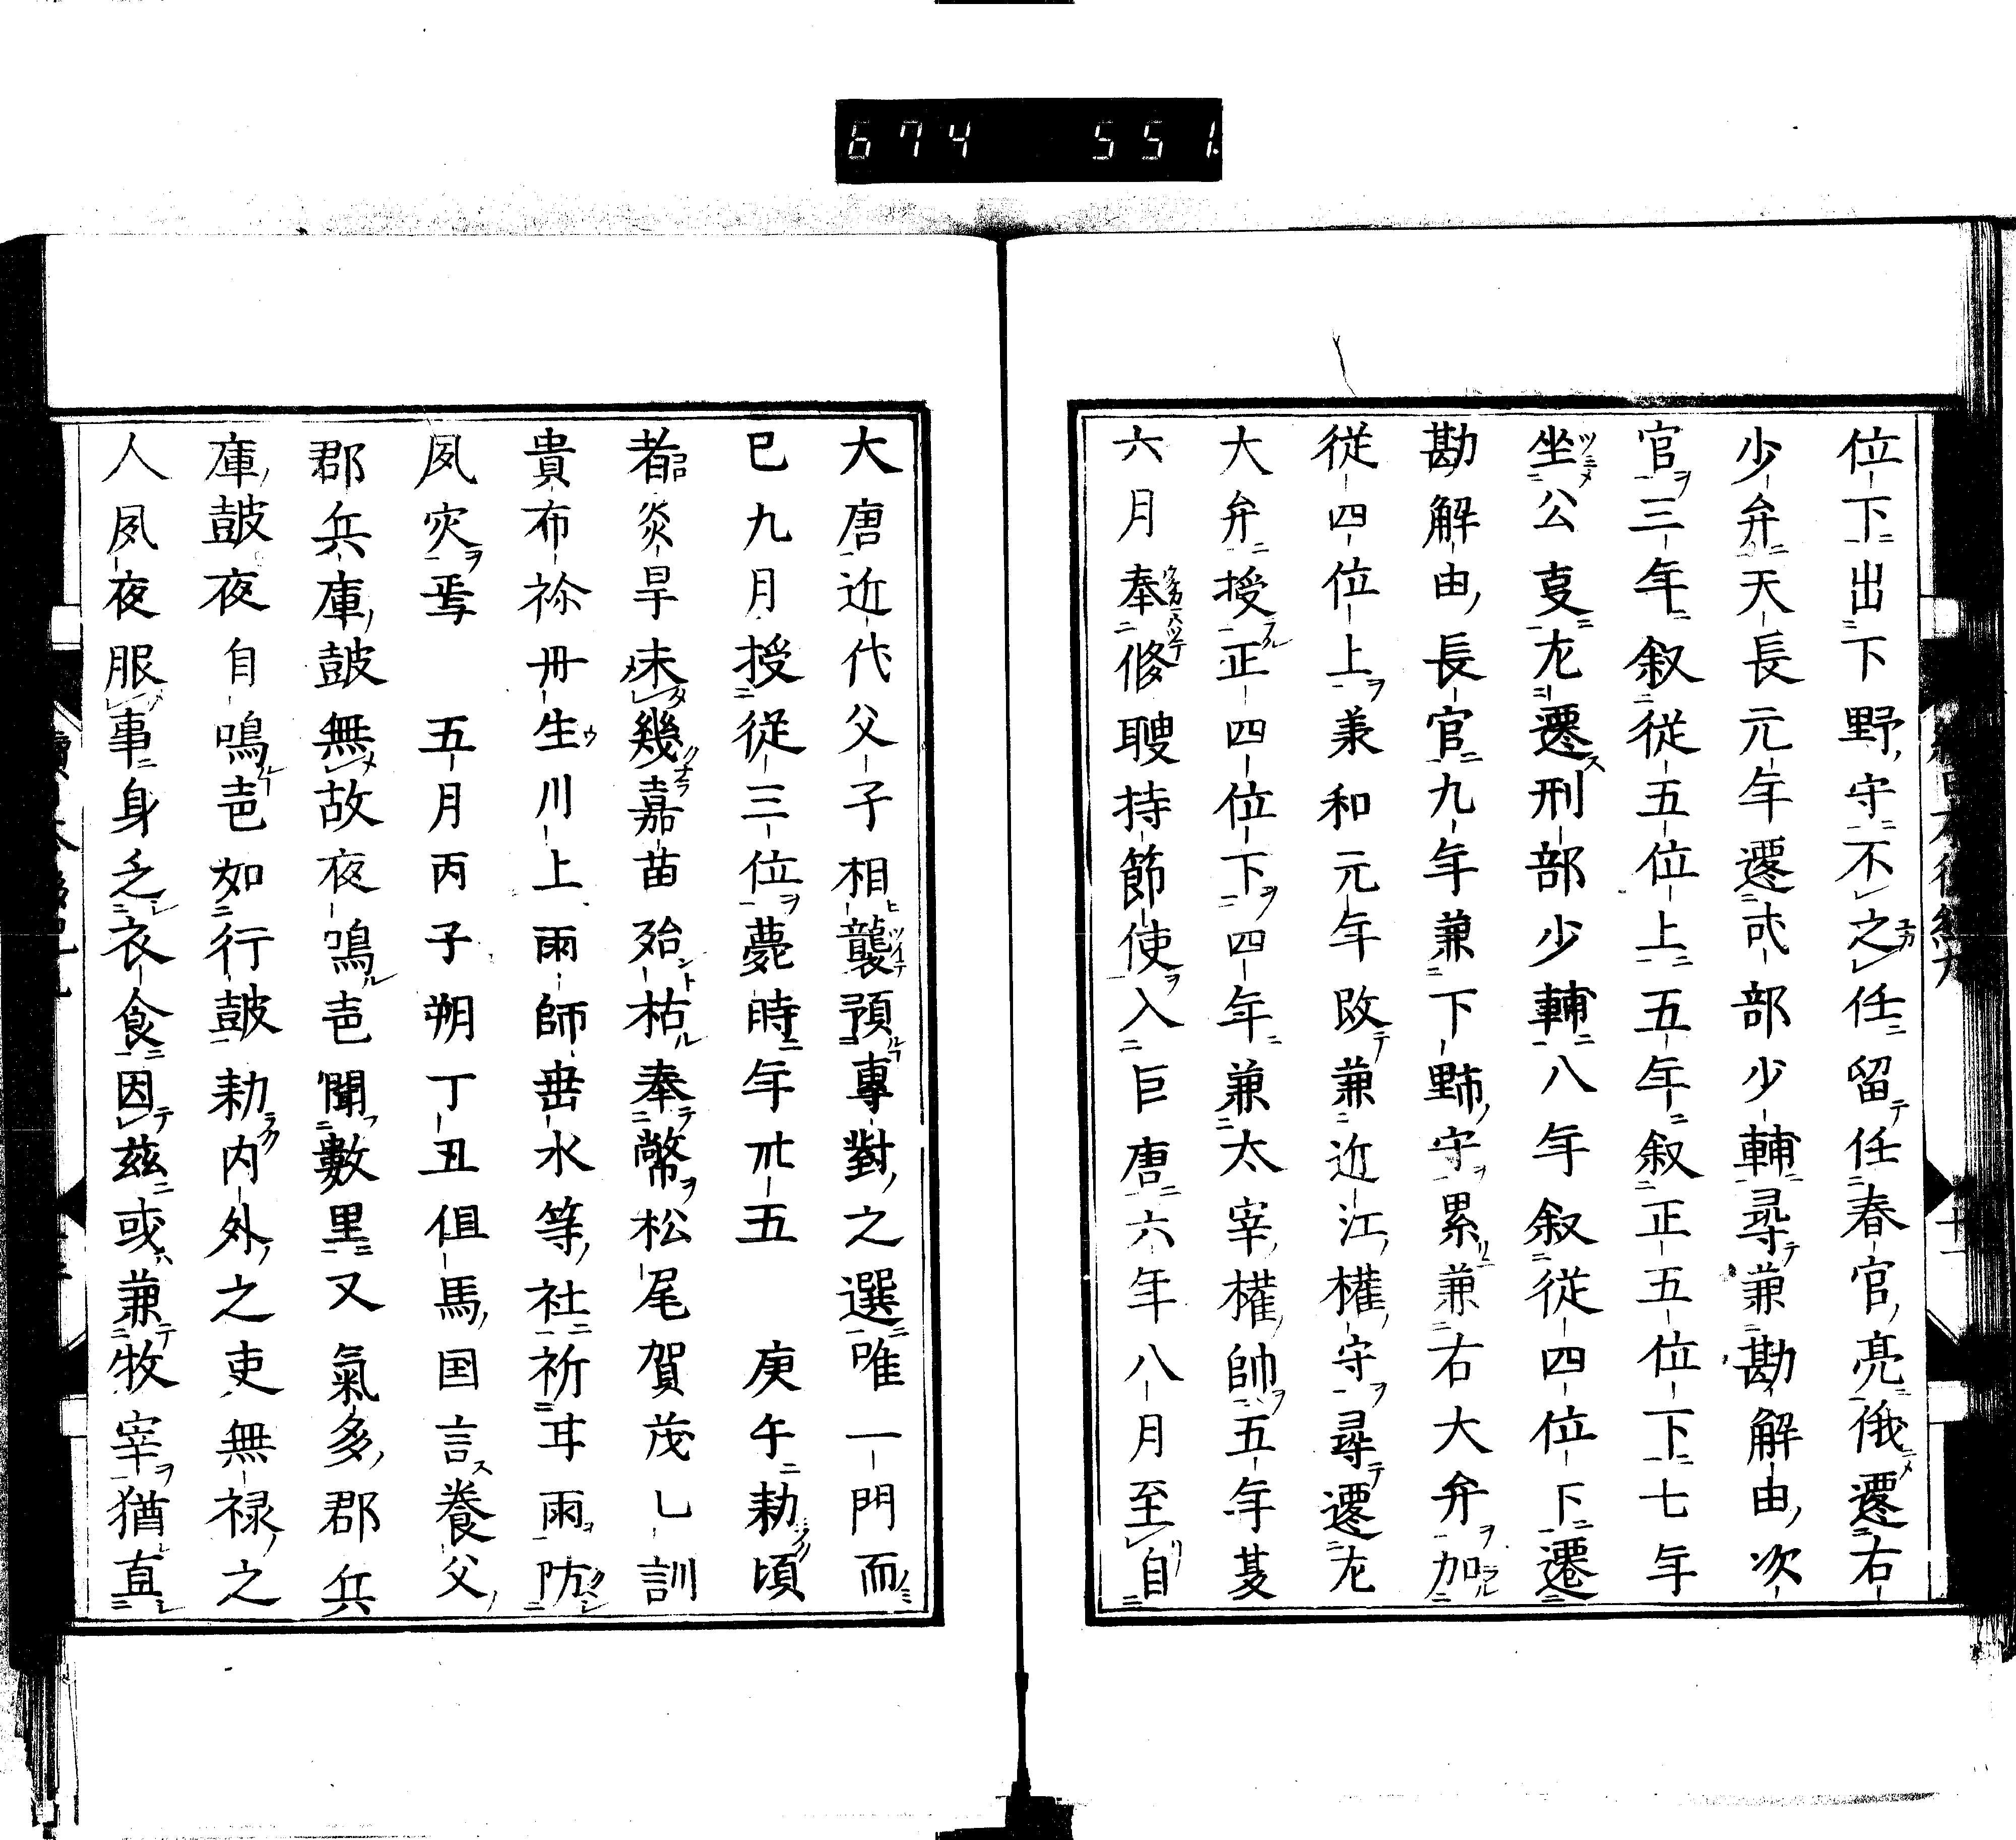 674 551
位下出下野守不之任留任春官亮俄遷右
少弁天長元年遷式部少輔尋兼勘解由次
官三年叙従五位上五年叙正五位下七年
坐公叓左遷刑部少輔八年叙従四位下遷
勘解由長官九年兼下野守累兼右大弁加
従四位上兼和元年改兼近江權守尋遷左
大弁授正四位下四年兼太宰權帥五年夏
六月奉修聘持節使入巨唐六年八月至自
大唐近代父子相襲預專對之選唯一門而
已九月授従三位薨時年卌五 庚午勅頃
者炎旱未幾嘉苗殆枯奉幣松尾賀茂乙訓
貴布祢丹生川上雨師垂水等社祈甘雨防
風灾焉 五月丙子朔丁丑但馬国言養父
郡兵庫皷無故夜鳴声聞數里又氣多郡兵
庫皷夜自鳴声如行皷勅内外之吏無禄之
人夙夜服事身乏衣食因玆或兼牧宰猶直